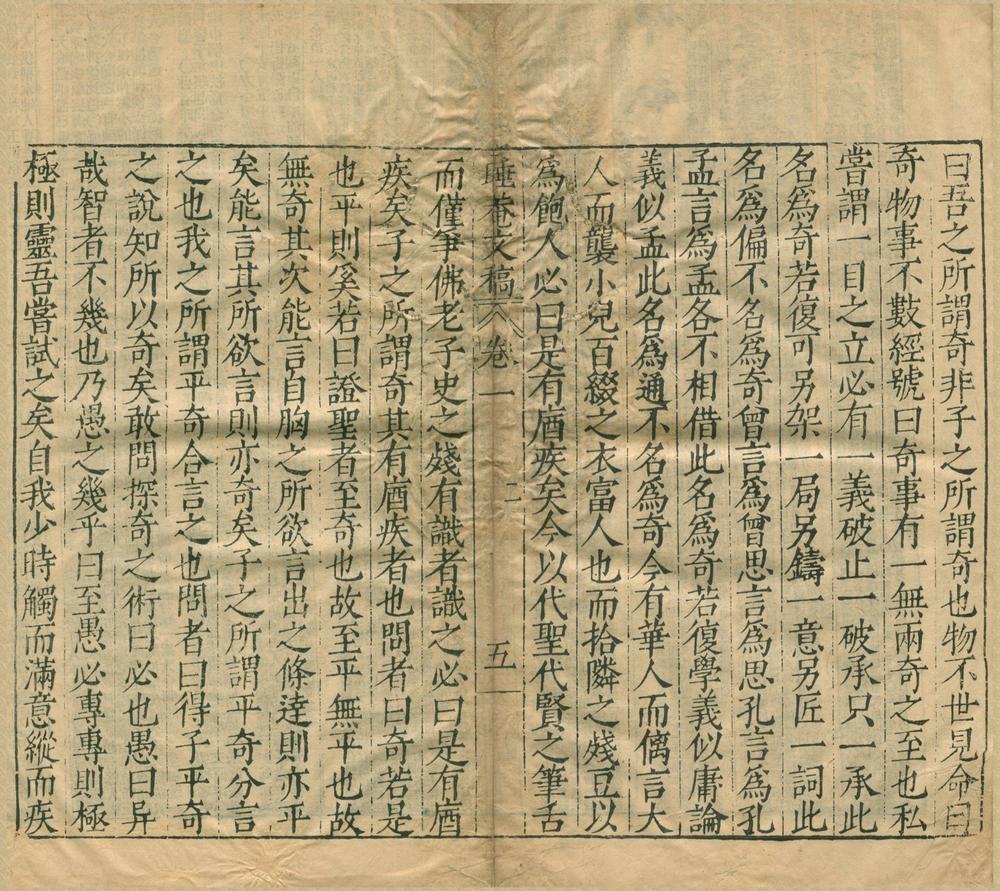 曰吾之所謂奇非子之所謂奇也物不世見命曰
奇物事不數經號曰奇事有一無兩奇之至也私
嘗謂一目之立必有一義破止一破承只一承此
名為奇若復可另架一局另鑄一意另匠一詞此
名為偏不名為奇曾言為曾思言為思孔言為孔
孟言為孟各不相借此名為奇若復學義似庸論
義似孟此名為通不名為奇今有華人而傐言大
人而襲小兒百綴之衣富人也而拾隣之殘豆以
為飽人必曰是有𢈪疾矣今以代聖代賢之筆舌
睡菴文稿 卷一 二 五
而僅爭佛老子史之殘有識者識之必曰是有𢈪
疾矣子之所謂奇其有𢈪疾者也問者曰奇若是
也平則奚若曰證聖者至奇也故至平無平也故
無奇其次能言自胸之所欲言出之條達則亦平
矣能言其所欲言則亦奇矣子之所謂平奇分言
之也我之所謂平奇合言之也問者曰得子平奇
之說知所以奇矣敢問探奇之術曰必也愚曰异
哉智者不幾也乃愚之幾乎曰至愚必專專則極
極則靈吾嘗試之矣自我少時觸而滿意縱而疾